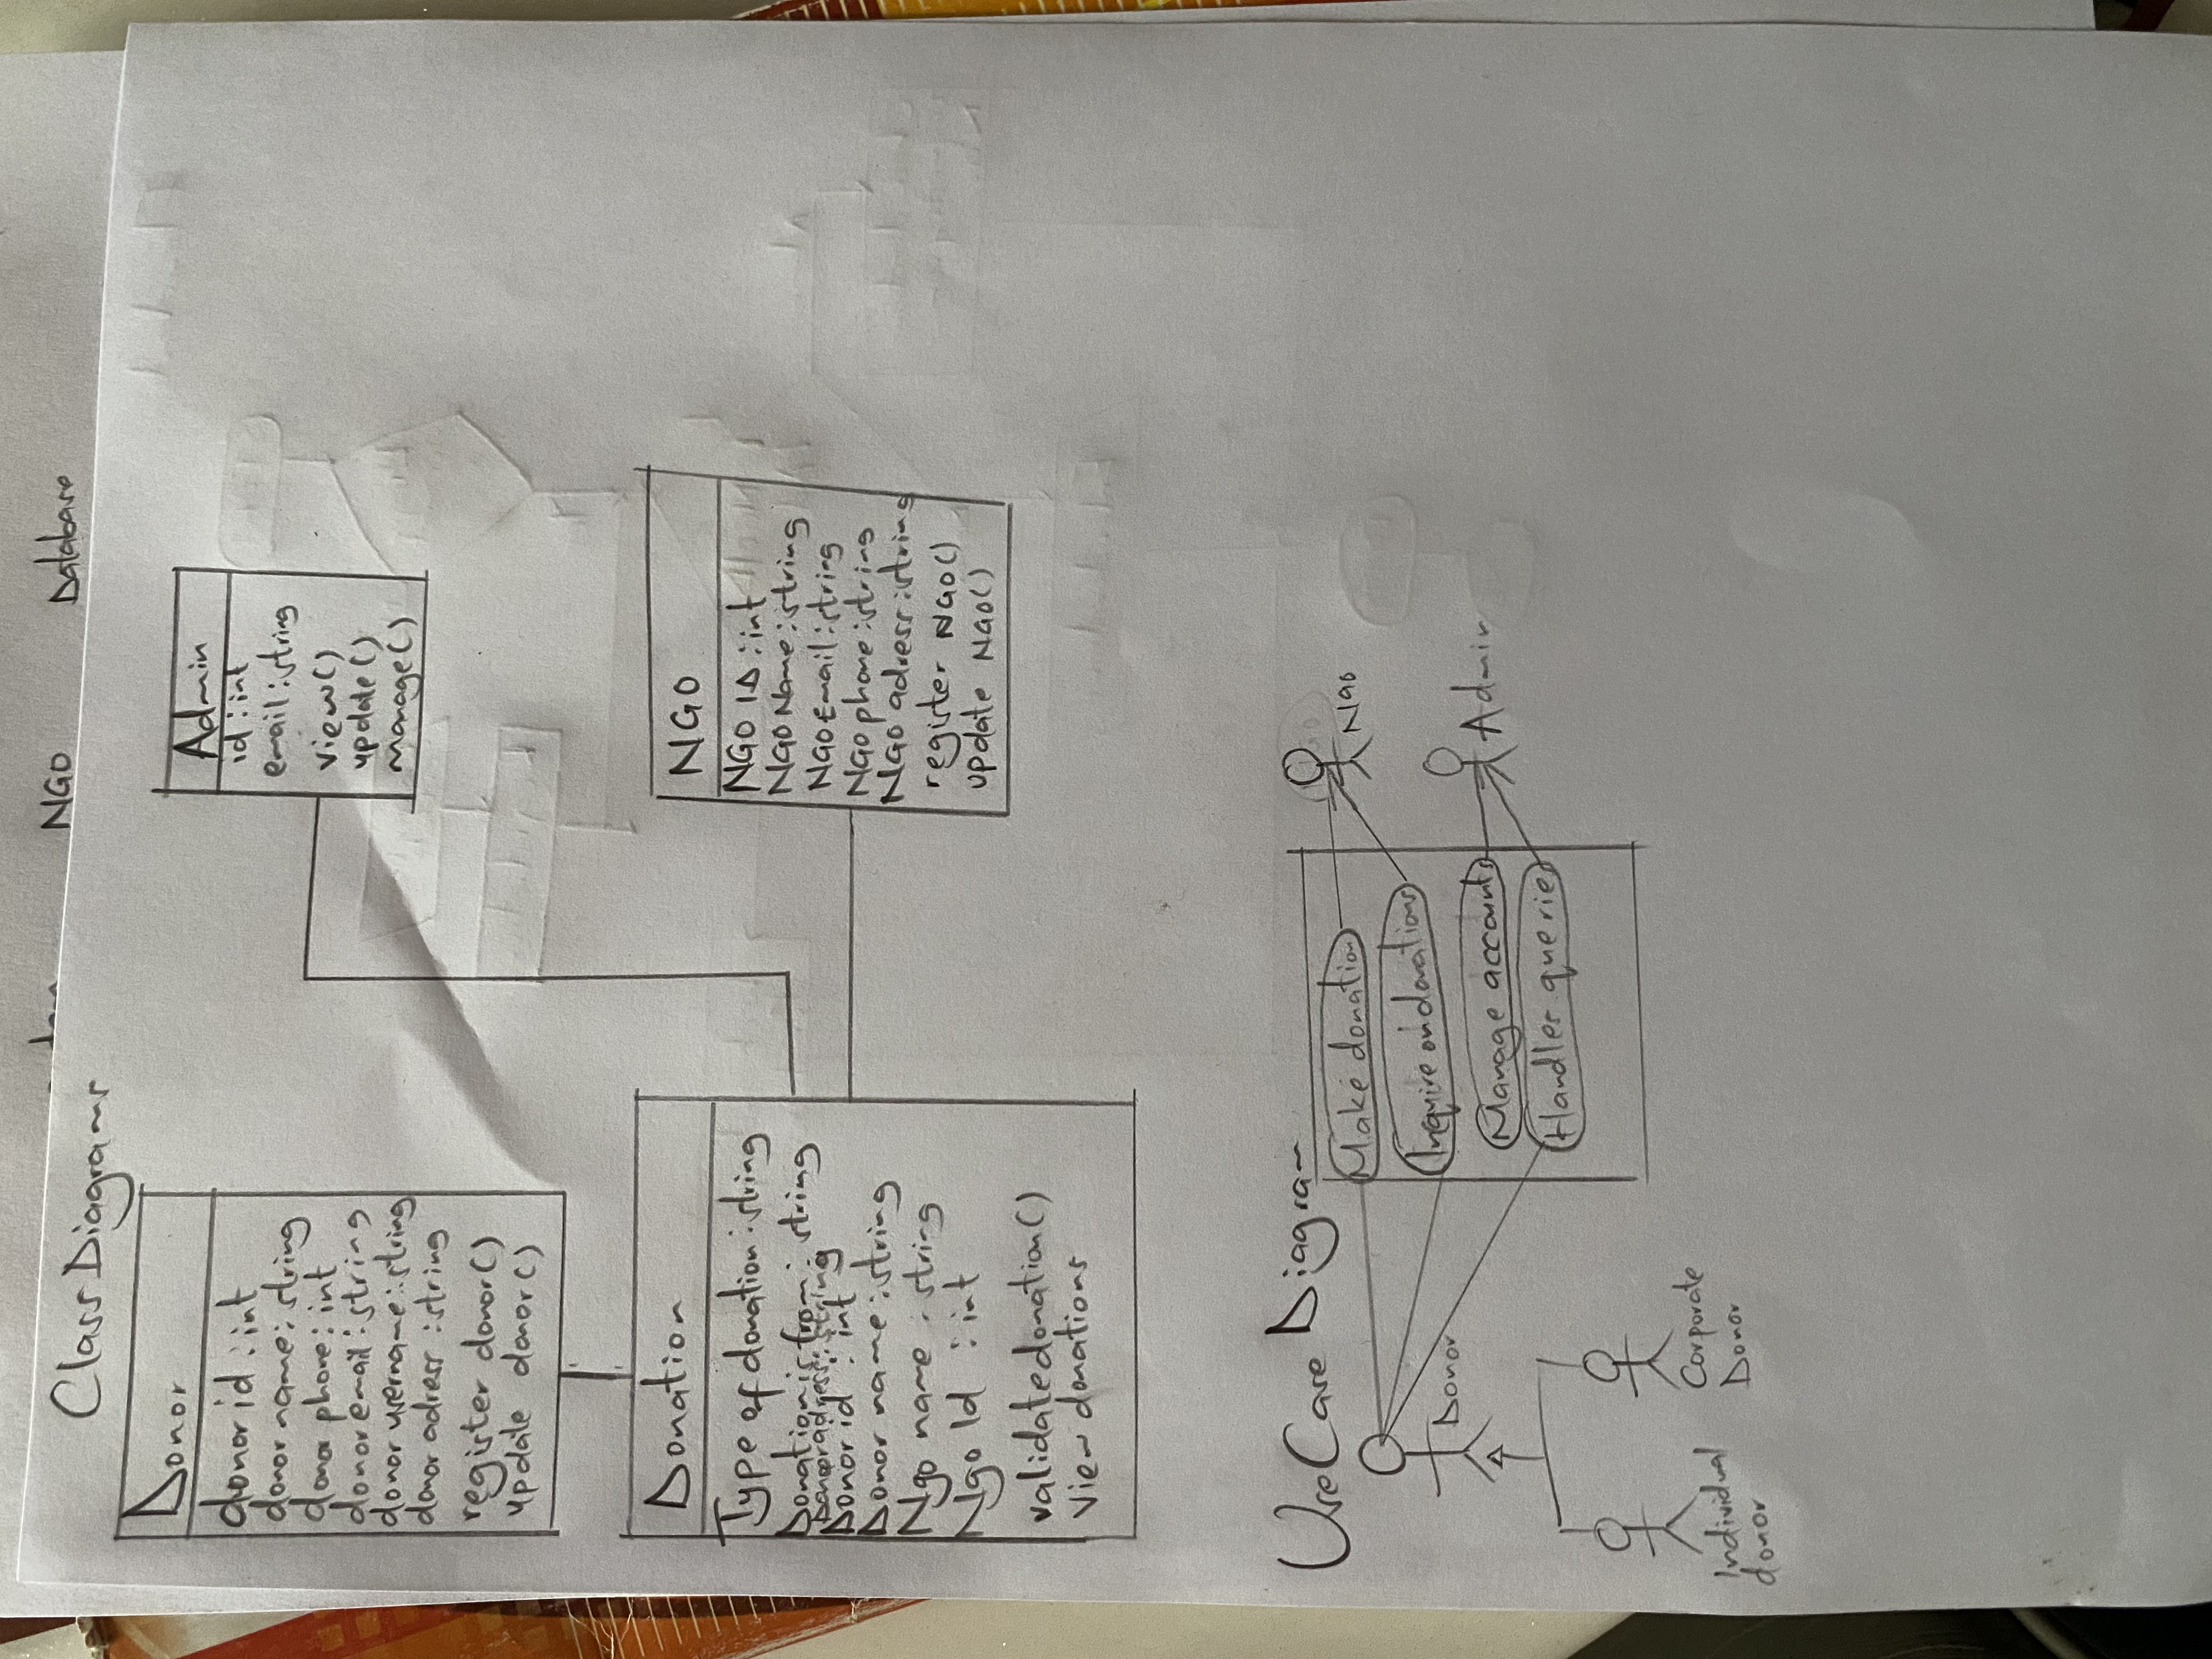 NGO
Database
Class Diagrams
Donor
donor id : int
donor name : string
donor phone : int
donor email : string
donor username : string
donor adress : string
register donor()
update donor()
Admin
id : int
email : string
view()
update()
manage()
Donation
Type of donation : string
Donation is from : string
Donor adress : string
Donor id : int
Donor name : string
Ngo name : string
Ngo Id : int
validatedonation()
View donations
NGO
NGO ID : int
NGO Name : string
NGO Email : string
NGO phone : string
NGO adress : string
register NGO()
update NGO()
UseCase Diagram
Donor
Individual
donor
Corporate
Donor
Make donation
Inquire on donations
Manage accounts
Handles queries
NGO
Admin